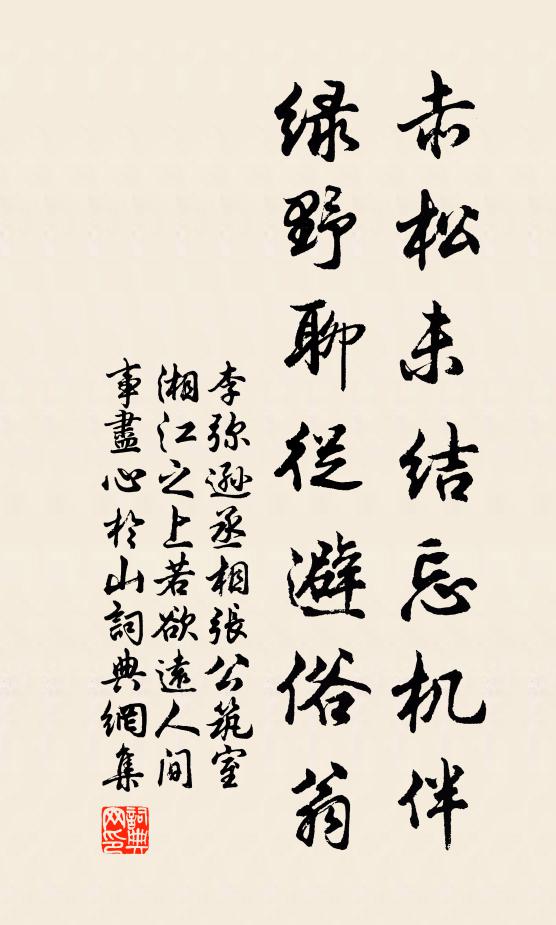 赤松未结忘机伴
绿野聊從避俗翁
李弥遜丞相張公筑室
湘江之上若欲遠人间
事盡心於山詞典網集
詞典网印